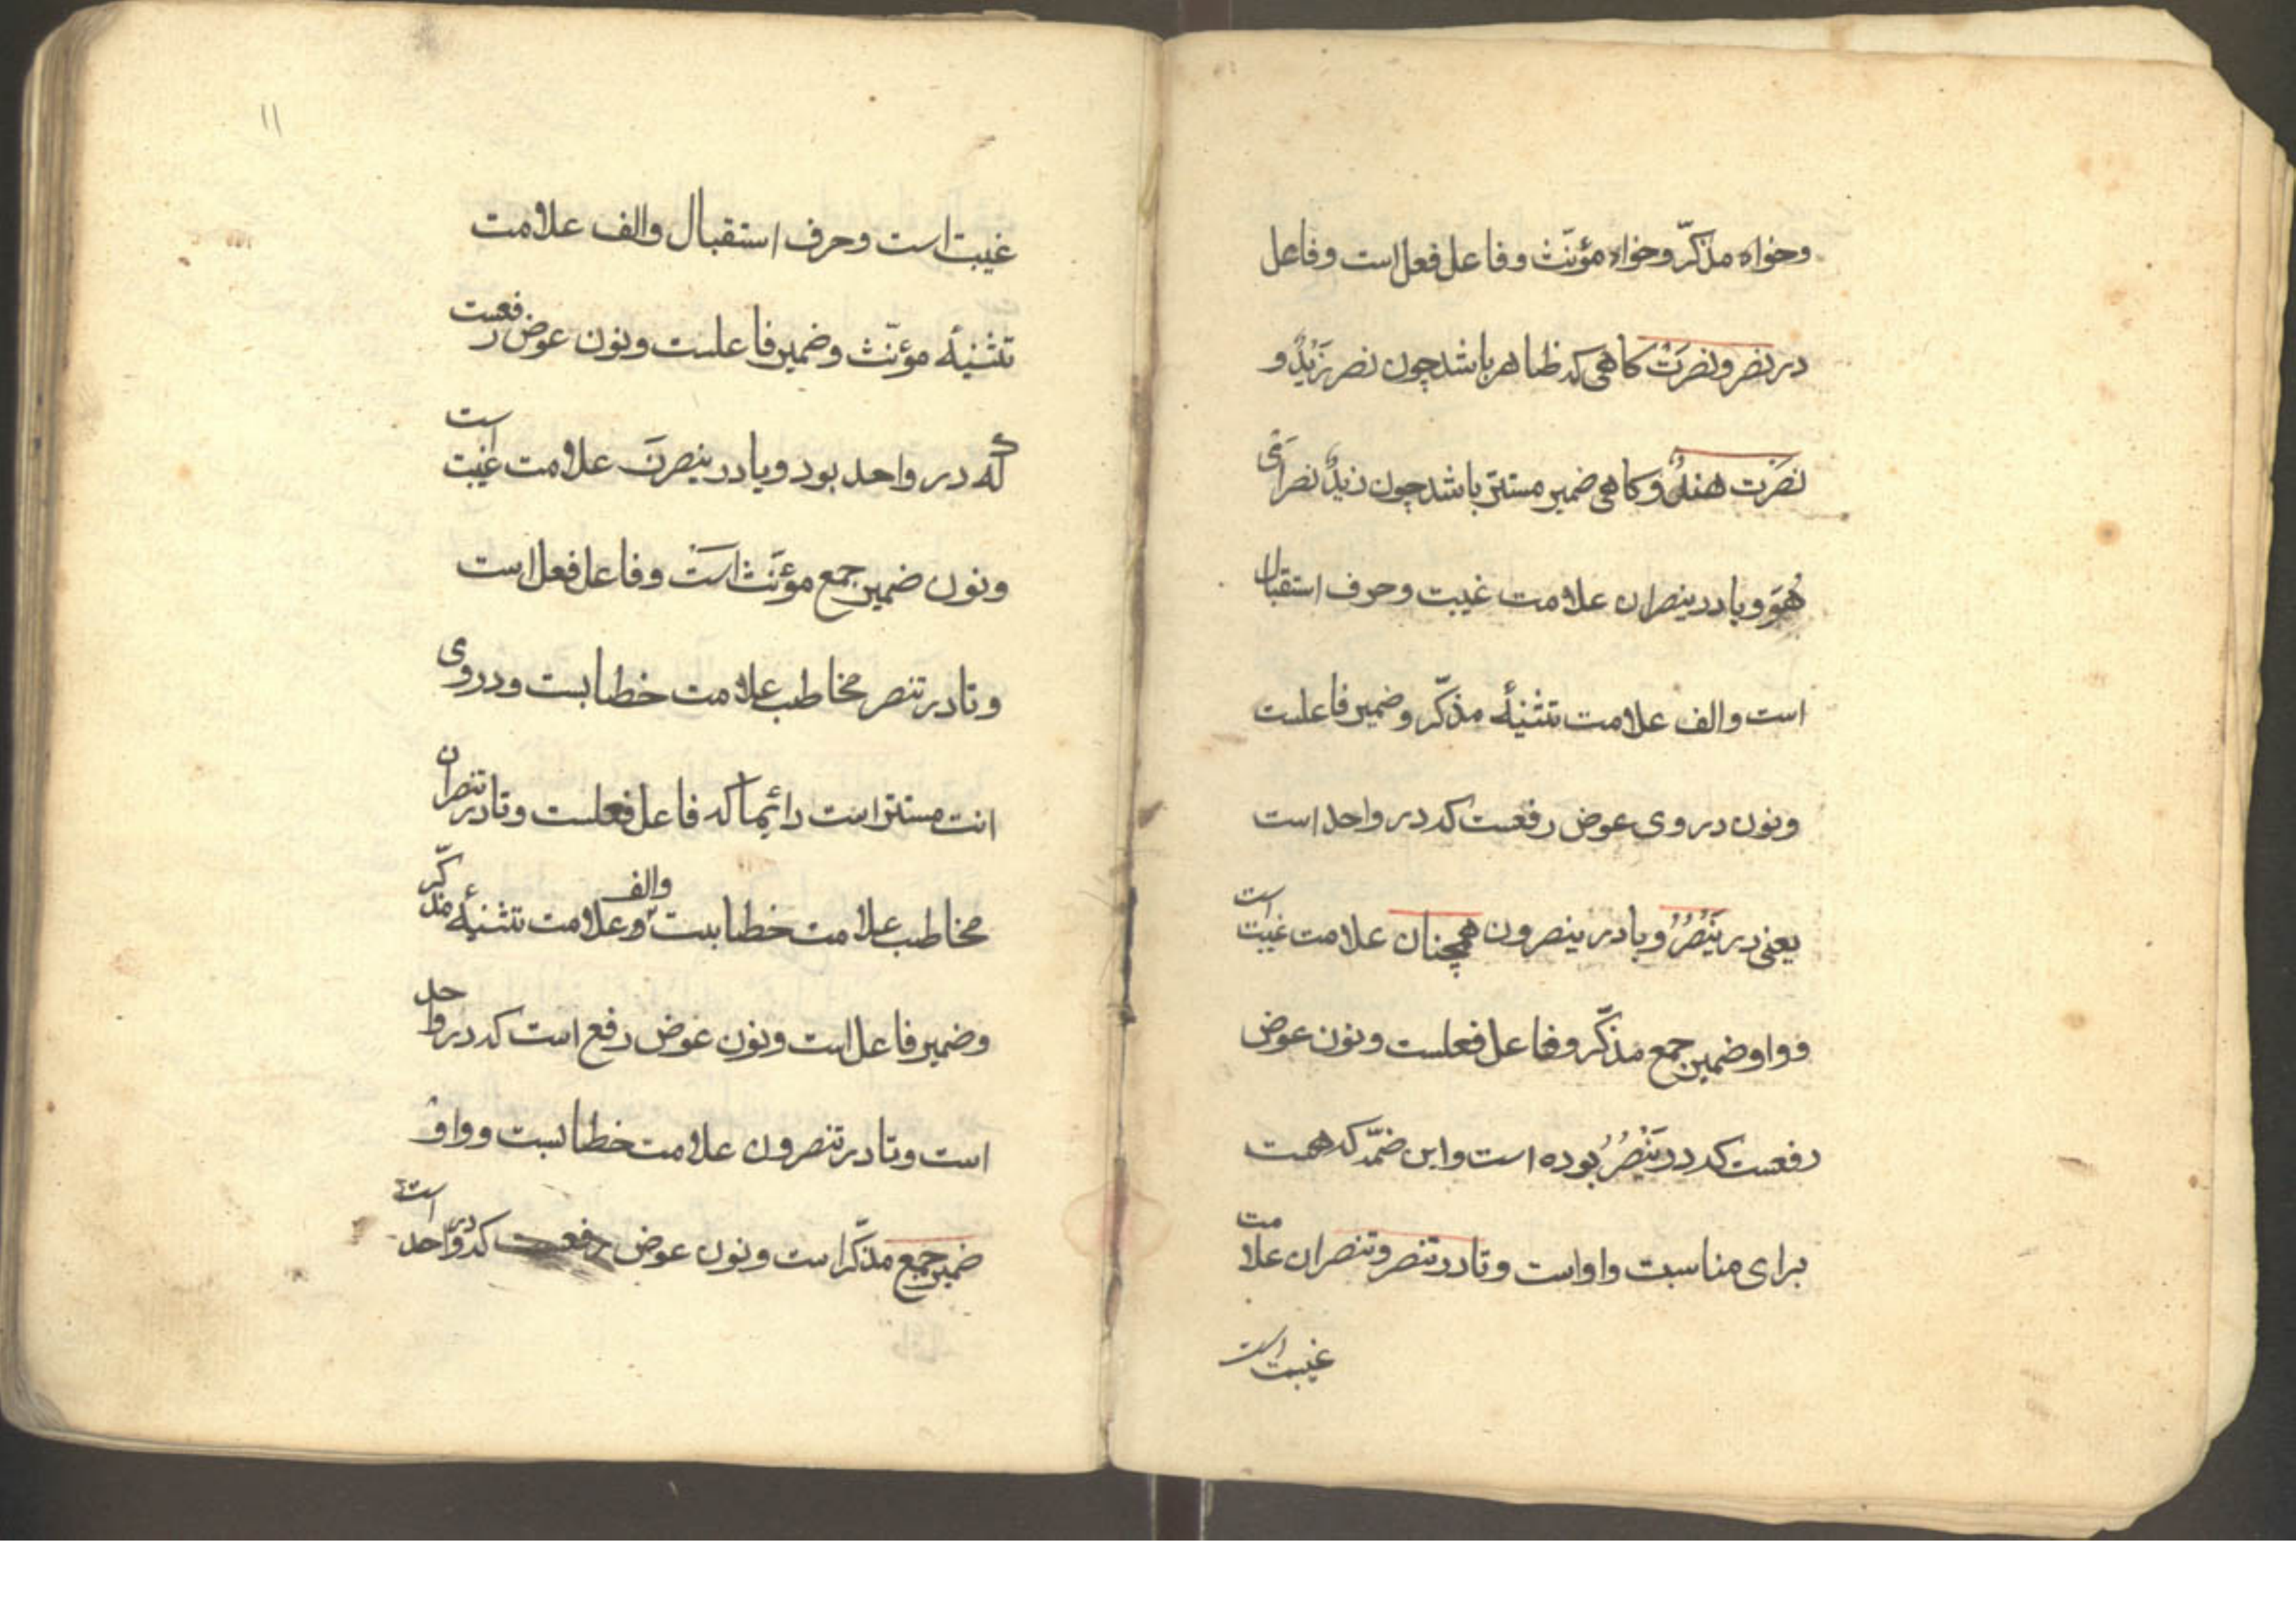 وخواه مذکّر وخواه مؤنّث وفاعل فعل است وفاعل
در نصر ونصرَتْ کاهی که ظاهر باشد چون نصر زَیْدٌ و
نصَرَت هندٌ وکاهی ضمیر مستتر باشد چون زیدٌ نصر اَیْ
هُوَ ویا در ینصران علامت غیبت وحرف استقبال
است والف علامت تثنیهٔ مذکّر وضمیر فاعلست
ونون در وی عوض رفعست که در واحد است
یعنی در یَنْصُرُ ویا در ینصرون همچنان علامت غیبت است
وواو ضمیر جمع مذکّر وفاعل فعلست ونون عوض
رفعست که در یَنْصُرُ بوده است واین ضمّه که هست
برای مناسبت واو است وتا در تنصر وتنصران علامت
غیبت است
۱۱
غیبت است وحرف استقبال والف علامت
تثنیهٔ مؤنّث وضمیر فاعلست ونون عوض رفعست
که در واحد بود ویا در ینصرنَ علامت غیبت است
ونون ضمیر جمع مؤنّث است وفاعل فعل است
وتا در تنصر مخاطب علامت خطابست ودر وی
انت مستتر است دائما که فاعل فعلست وتا در تنصران
مخاطب علامت خطابست والف وعلامت تثنیهٔ مذکّر
وضمیر فاعل است ونون عوض رفع است که در واحد
است وتا در تنصرون علامت خطابست وواو
ضمیر جمع مذکّر است ونون عوض رفعست که در واحد است